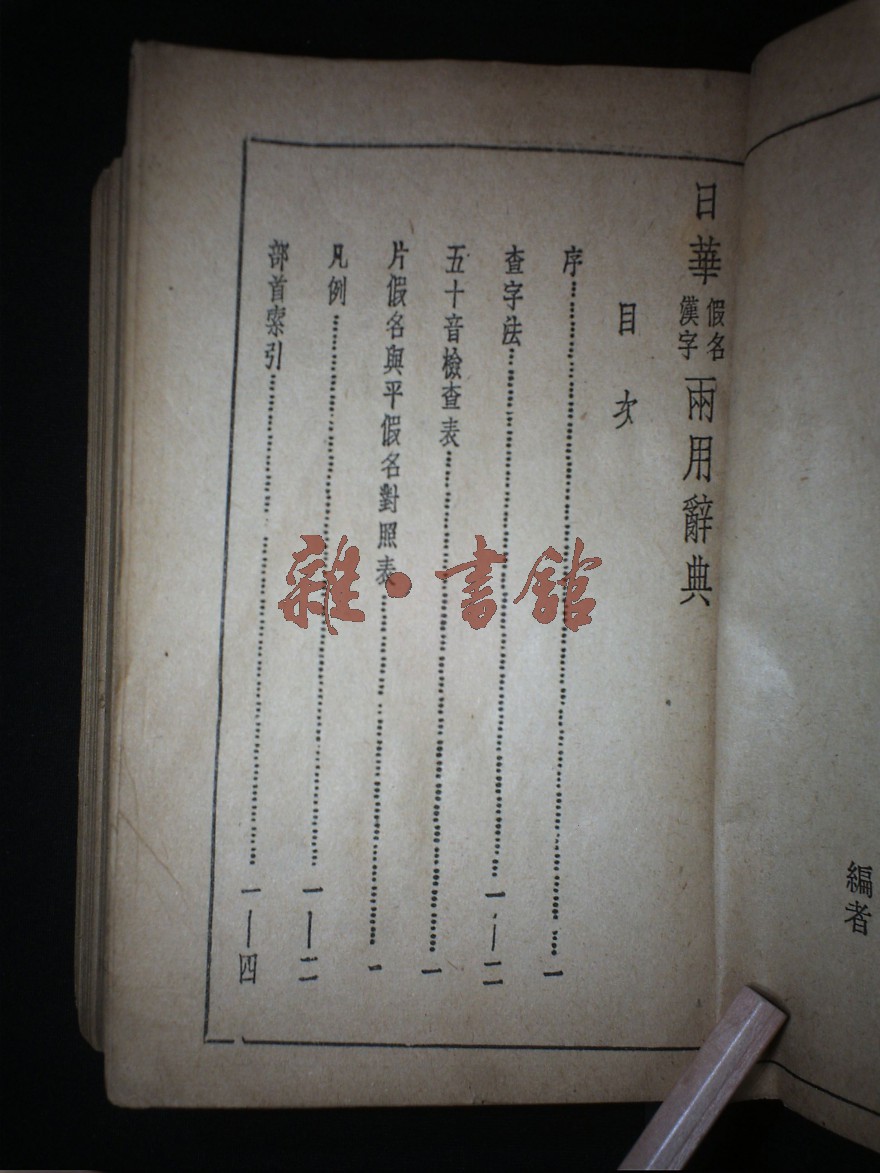 編者
日華假名漢字兩用辭典
目次
序……………………一
查字法……………………一—二
五十音檢查表……………………一
片假名與平假名對照表……………………一
凡例……………………一—二
部首索引……………………一—四
雜·書館